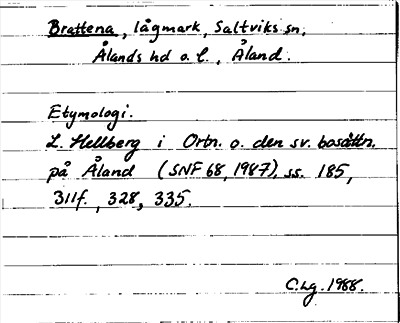 Brattena, lågmark, Saltviks sn,
Ålands hd o. l., Åland.
Etymologi.
L. Hellberg i Ortn. o. den sv. bosättn.
på Åland (SNF 68, 1987), ss. 185,
311f., 328, 335.
C.Lg. 1988.